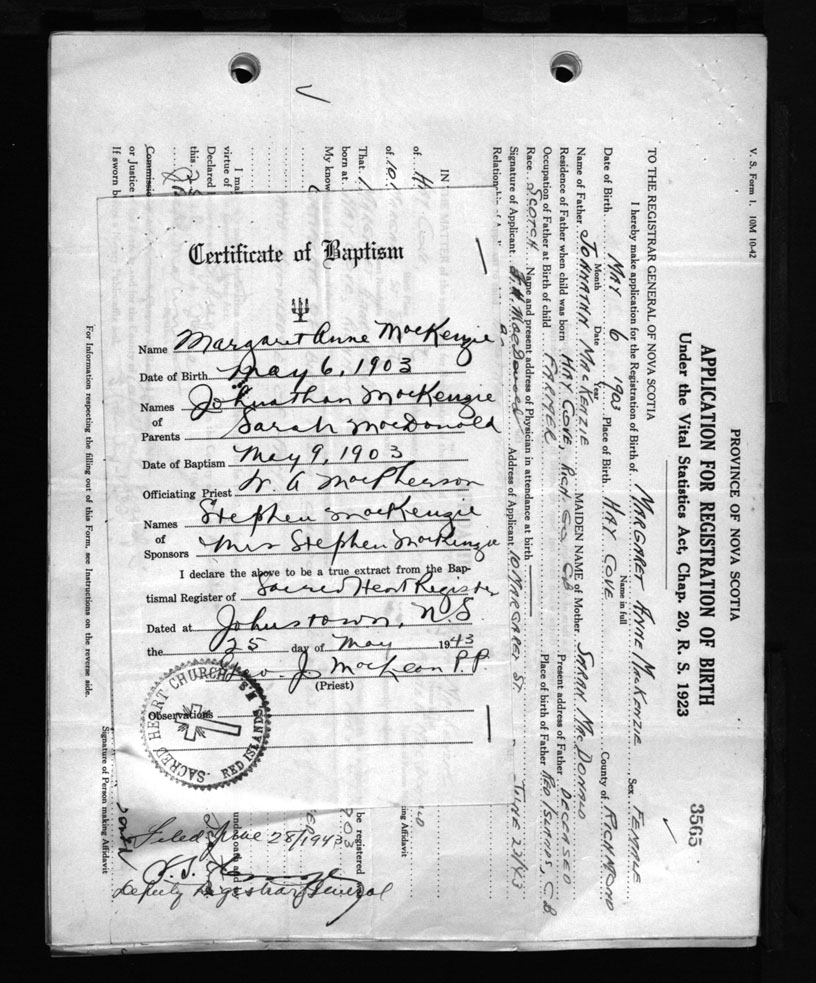 V. S. Form 1. 10M 10-42
PROVINCE OF NOVA SCOTIA
APPLICATION FOR REGISTRATION OF BIRTH
Under the Vital Statistics Act, Chap. 20, R. S. 1923
3565
TO THE REGISTRAR GENERAL OF NOVA SCOTIA
I hereby make application for the Registration of Birth of MARGARET ANNE MACKENZIE Sex FEMALE
Name in full
Date of Birth MAY 6 1903 Place of Birth HAY COVE County of RICHMOND
Month Date Year
Name of Father JOHNATHAN MACKENZIE MAIDEN NAME of Mother SARAH MACDONALD
Residence of Father when child was born HAY COVE, RICH. CO. CB Present address of Father DECEASED
Occupation of Father at Birth of child FARMER Place of birth of Father RED ISLANDS, C.B.
Race SCOTCH Name and present address of Physician in attendance at birth
Signature of Applicant Address of Applicant 10 MARGARET ST. - JUNE 22/43
Certificate of Baptism
Name Margaret Anne MacKenzie
Date of Birth May 6, 1903
Names Johnathan MacKenzie
of
Parents Sarah MacDonald
Date of Baptism May 9, 1903
Officiating Priest A MacPherson
Names Stephen MacKenzie
of
Sponsors Mrs Stephen MacKenzie
I declare the above to be a true extract from the Bap-
tismal Register of Sacred Heart Register
Dated at Johnstown, N.S.
the 25 day of May 1943
J. MacLean P.P.
(Priest)
Observations
SACRED HEART CHURCH RED ISLANDS N.S.
IN THE MATTER of
of HAY COVE
That I
born at
My know
I mak
virtue of
Declared
this
Commissio
or Justice
If sworn b
be registered
ing Affidavit
under oath and
Filed June 28/1943
Deputy Registrar General
Signature of Person making Affidavit
For Information respecting the filling out of this Form, see Instructions on the reverse side.